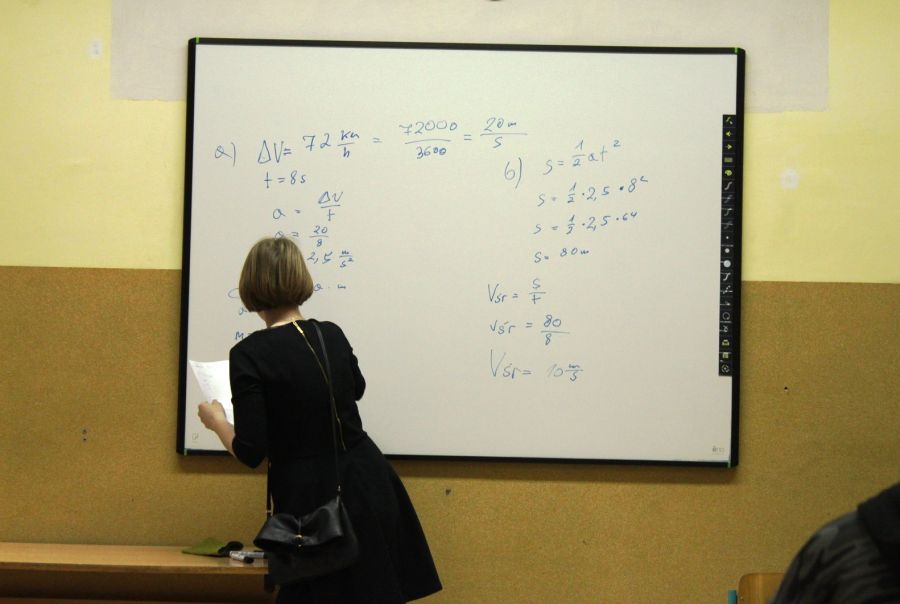 a) ΔV= 72 km/h = 72000/3600 = 20m/s
t=8s
a = ΔV/t
= 20/8
2,5 m/s²
b) s = 1/2 at²
s = 1/2 · 2,5 · 8²
s = 1/2 · 2,5 · 64
s= 80m
Vśr = s/t
Vśr = 80/8
Vśr= 10 m/s